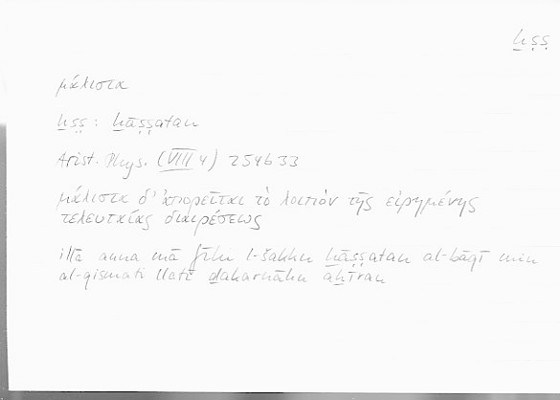 ḫṣṣ
μάλιστα
ḫṣṣ : ḫāṣṣatan
Arist. Phys. (VIII 4) 254b33
μάλιστα δ' ἀπορεῖται τὸ λοιπὸν τῆς εἰρημένης
τελευταίας διαιρέσεως
illā anna mā fīhi l-šakku ḫāṣṣatan al-bāqī min
al-qismati llatī ḏakarnāhu aḫīran